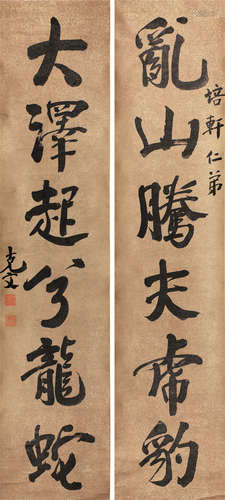 培軒仁弟
亂山騰夫虎豹
大澤起兮龍蛇
克文